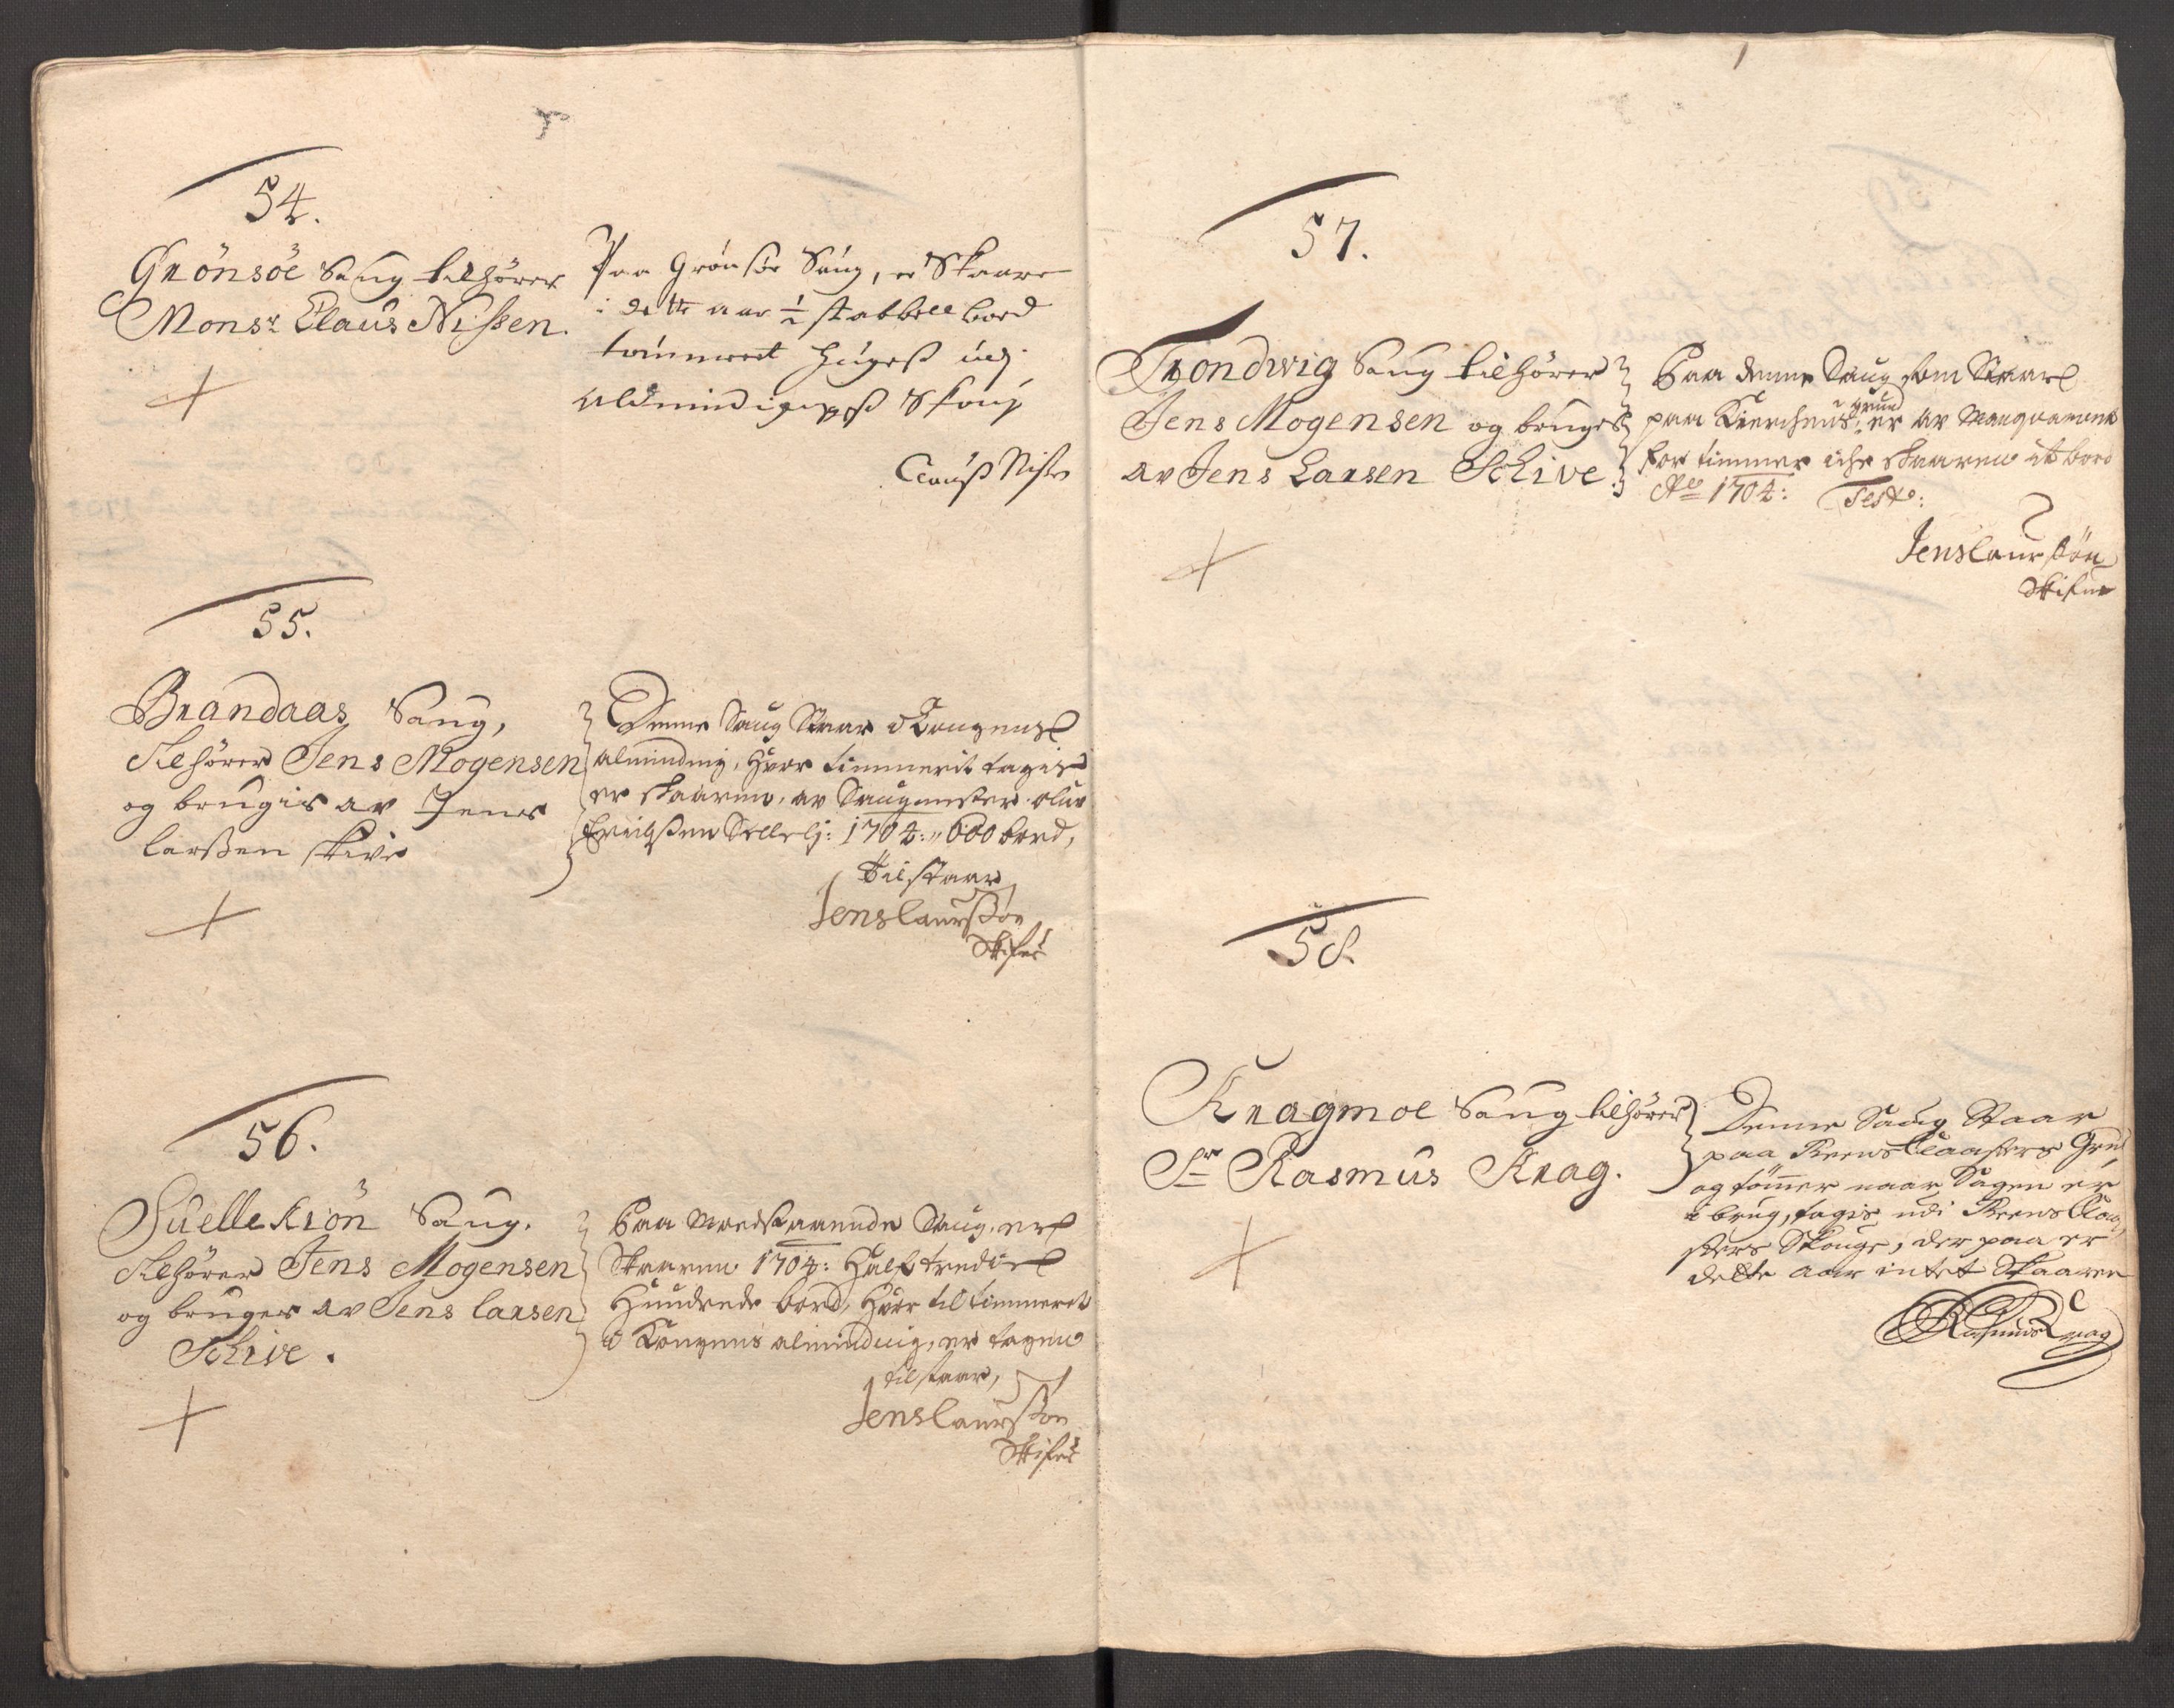 54.
Grönsöe Saug tilhörer
Monsr Claus Nissen.
Paa Grönsöe Saug, er Skaare
i dette aar ½ stabbell bord
tömmeret hugess udj
Aldmindingss Skoug
Clauss Nissen
55.
Brandaas Saug,
Tilhörer Jens Mogensen
og brugis av Jens
Larssen Skive
Denne Saug Staar i Kongens
alminding, Hvor timmerit tagis
er skaaren, av Saugmester Oluv
1704: 600 bord,
tilstaar
Jens Laurssön
Skifve
56.
Suellekiön Saug.
Tilhörer Jens Mogensen
og bruges av Jens Larsen
Schive.
Paa Modstaaende Saug, er
Skaaren 1704: Halftredie
Hundrede bord, Hvor til timmeret
i Kongens alminding, er tagen
tilstaar,
Jens Laurssön
Skifve
57.
Trondwig Saug tilhörer
Jens Mogensen og bruges
av Jens Larsen Schive.
Paa denne Saug som Staar
paa Kierchens grund er av Manquement
for timmer iche skaaren it bord
Ao 1704: Testr:
Jens Laurssön
Skifve
58.
Kragmoe Saug tilhörer
Sr Rasmus Krag.
Denne Saug Staar
paa Reens Claasters Grund
og tömmer naar Sagen er
i brug, tagis udi Reens Claa
sters Skouge, der paa er
dette Aar intet Skaaren
Rasmus Krag